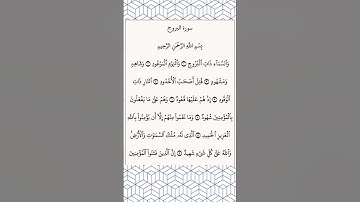 سورة البروج
بِسْمِ اللَّهِ الرَّحْمَٰنِ الرَّحِيمِ
وَالسَّمَاءِ ذَاتِ الْبُرُوجِ ۝ وَالْيَوْمِ الْمَوْعُودِ ۝ وَشَاهِدٍ
وَمَشْهُودٍ ۝ قُتِلَ أَصْحَابُ الْأُخْدُودِ ۝ النَّارِ ذَاتِ
الْوَقُودِ ۝ إِذْ هُمْ عَلَيْهَا قُعُودٌ ۝ وَهُمْ عَلَىٰ مَا يَفْعَلُونَ
بِالْمُؤْمِنِينَ شُهُودٌ ۝ وَمَا نَقَمُوا مِنْهُمْ إِلَّا أَن يُؤْمِنُوا بِاللَّهِ
الْعَزِيزِ الْحَمِيدِ ۝ الَّذِي لَهُ مُلْكُ السَّمَاوَاتِ وَالْأَرْضِ
وَاللَّهُ عَلَىٰ كُلِّ شَيْءٍ شَهِيدٌ ۝ إِنَّ الَّذِينَ فَتَنُوا الْمُؤْمِنِينَ